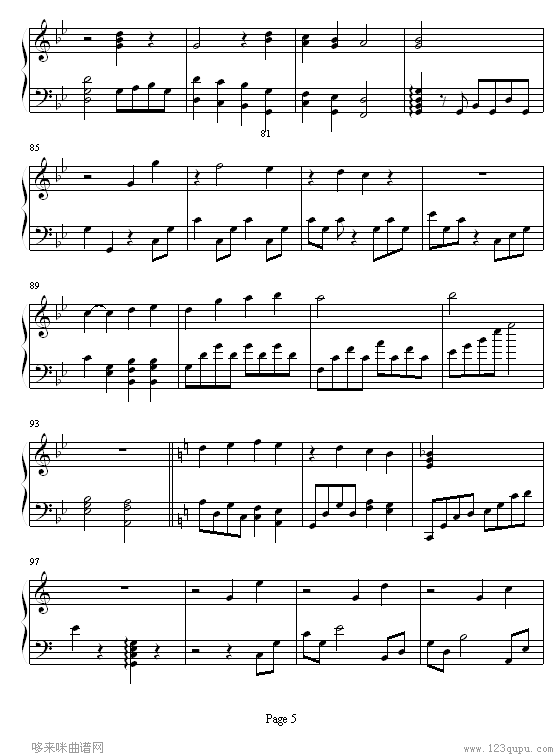 81
85
89
93
97
Page 5
哆来咪曲谱网
www.123qupu.com